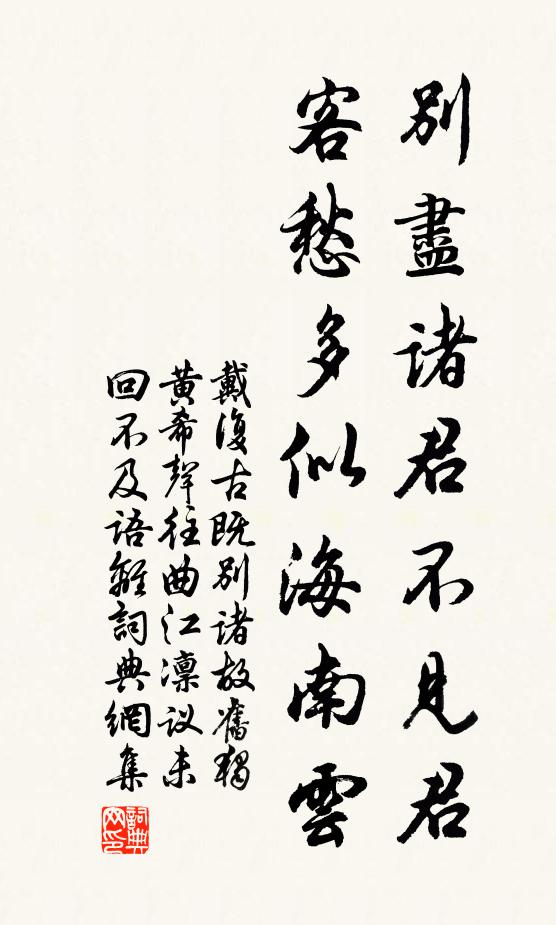 別盡諸君不見君
客愁多似海南雲
戴復古既別諸故舊獨
黄希聲往曲江凛议未
回不及語離詞典網集
詞典网印